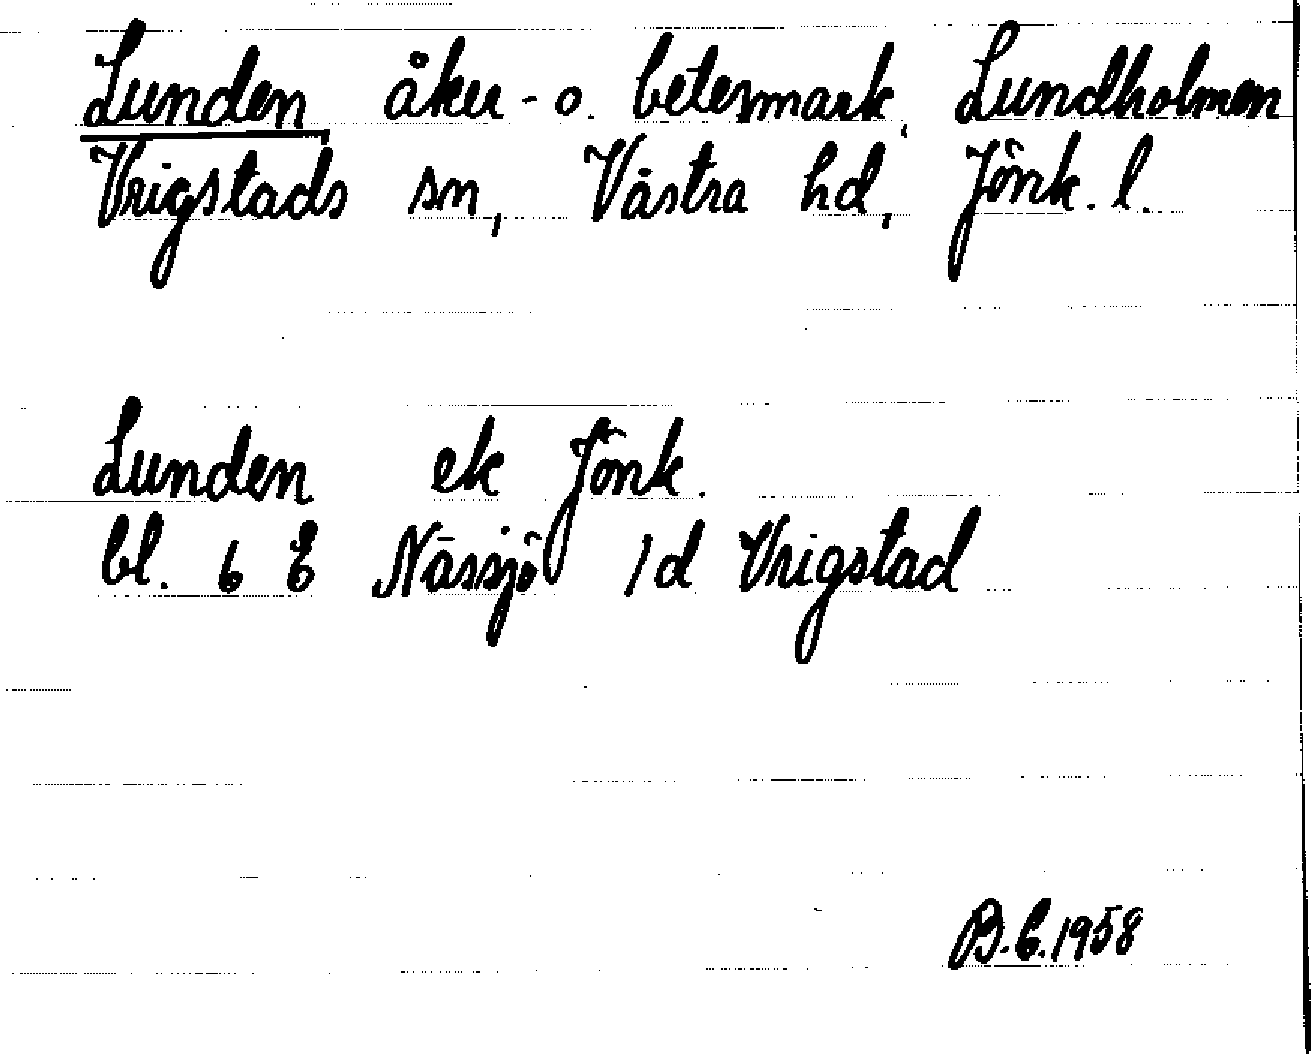 Lunden, åker- o. betesmark, Lundholmen
Vrigstads sn, Västra hd, Jönk. l.
Lunden ek Jönk.
bl. 6 E Nässjö 1d Vrigstad
B.E. 1958